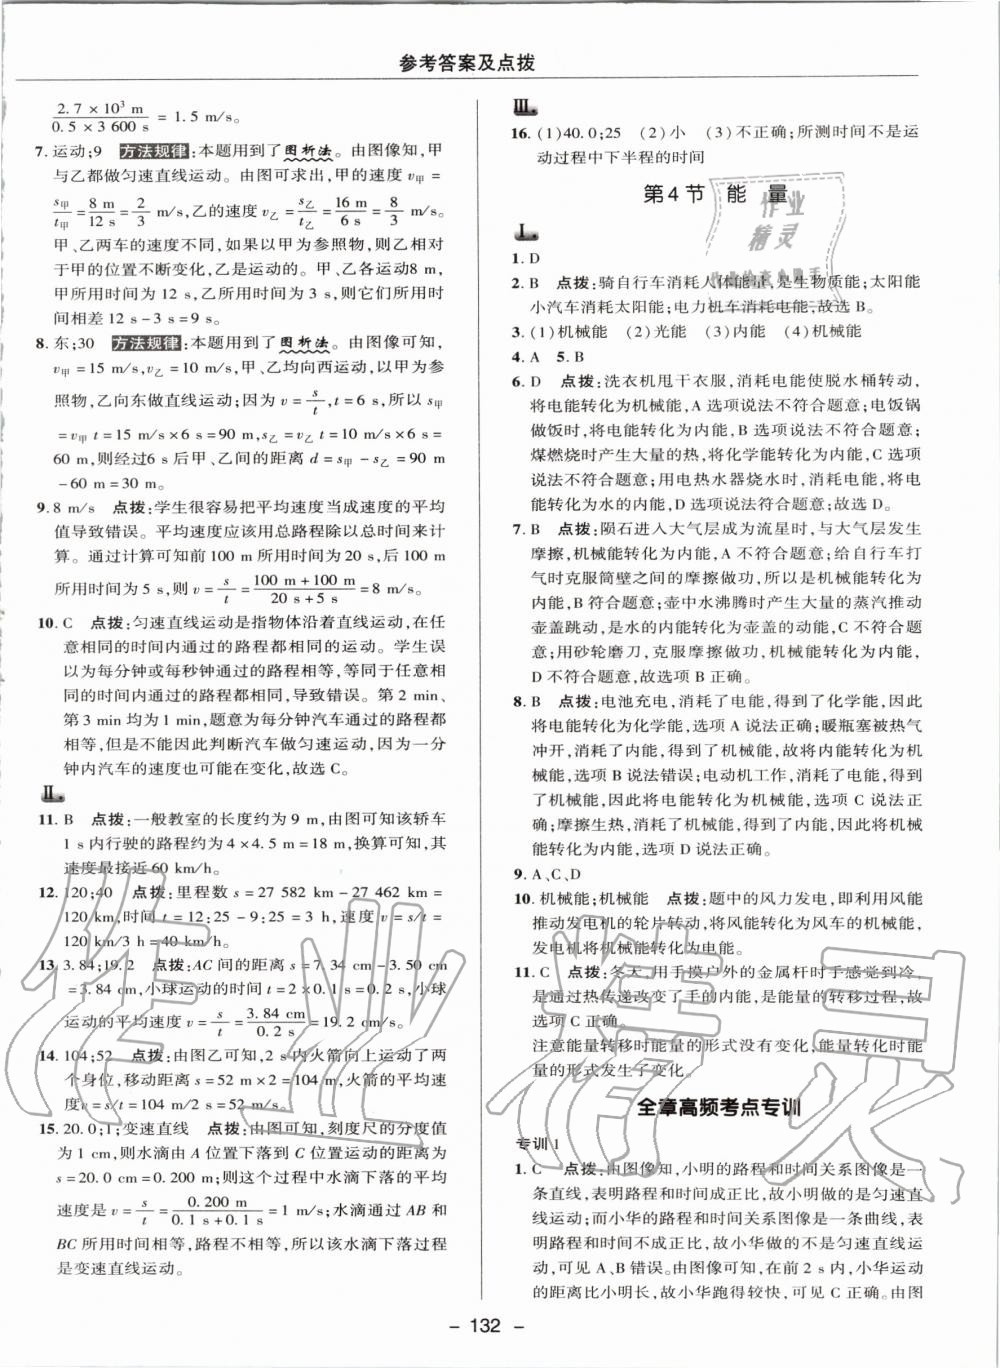 参考答案及点拨
2.7×10³ m/0.5×3 600 s = 1.5 m/s。
7. 运动;9 方法规律:本题用到了图析法。由图像知,甲
与乙都做匀速直线运动。由图可求出,甲的速度 v甲 =
s甲/t甲 = 8 m/12 s = 2/3 m/s,乙的速度 v乙 = s乙/t乙 = 16 m/6 s = 8/3 m/s。
甲、乙两车的速度不同,如果以甲为参照物,则乙相对
于甲的位置不断变化,乙是运动的。甲、乙各运动8 m,
甲所用时间为 12 s,乙所用时间为 3 s。则它们所用时
间相差 12 s-3 s=9 s。
8. 东;30 方法规律:本题用到了图析法。由图像可知,
v甲=15 m/s,v乙=10 m/s,甲、乙均向西运动,以甲为参
照物,乙向东做直线运动;因为 v=s/t,t=6 s,所以 s甲
=v甲 t=15 m/s×6 s=90 m,s乙=v乙 t=10 m/s×6 s=
60 m,则经过6 s 后甲、乙间的距离 d=s甲-s乙=90 m
-60 m=30 m。
9. 8 m/s 点拨:学生很容易把平均速度当成速度的平均
值导致错误。平均速度应该用总路程除以总时间来计
算。通过计算可知前 100 m 所用时间为 20 s,后 100 m
所用时间为 5 s,则 v=s/t=100 m+100 m/20 s+5 s=8 m/s。
10. C 点拨:匀速直线运动是指物体沿着直线运动,在任
意相同的时间内通过的路程都相同的运动。学生误
以为每分钟或每秒钟通过的路程相等,等同于任意相
同的时间内通过的路程都相同,导致错误。第 2 min、
第 3 min 均为 1 min,题意为每分钟汽车通过的路程都
相等,但是不能因此判断汽车做匀速运动,因为一分
钟内汽车的速度也可能在变化,故选 C。
Ⅱ.
11. B 点拨:一般教室的长度约为 9 m,由图可知该轿车
1 s 内行驶的路程约为 4×4.5 m=18 m,换算可知,其
速度最接近 60 km/h。
12. 120;40 点拨:里程数 s=27 582 km-27 462 km=
120 km,时间 t=12:25-9:25=3 h,速度 v=s/t=
120 km/3 h=40 km/h。
13. 3.84;19.2 点拨:AC 间的距离 s=7.34 cm-3.50 cm
=3.84 cm,小球运动的时间 t=2×0.1 s=0.2 s,小球
运动的平均速度 v=s/t=3.84 cm/0.2 s=19.2 cm/s。
14. 104;52 点拨:由图乙可知,2 s 内火箭向上运动了两
个身位,移动距离 s=52 m×2=104 m,火箭的平均速
度v=s/t=104 m/2 s=52 m/s。
15. 20.0;1;变速直线 点拨:由图可知,刻度尺的分度值
为 1 cm,所以水滴由 A 位置下落到 C 位置的距离为
s=20.0 cm=0.200 m,则这个过程中水滴下落的平均
速度是 v=s/t=0.200 m/0.1 s+0.1 s=1 m/s;水滴通过 AB 和
BC 所用时间相等,路程不相等,所以该水滴下落过程
是变速直线运动。
Ⅲ.
16. (1)40.0;25 (2)小 (3)不正确;所测时间不是运
动过程中下半程的时间
第 4 节 能 量
Ⅰ.
1. D
2. B 点拨:骑自行车消耗人体能量,是生物质能;太阳能
小汽车消耗太阳能;电力机车消耗电能,故选 B。
3. (1)机械能 (2)光能 (3)内能 (4)机械能
4. A 5. B
6. D 点拨:洗衣机甩干衣服,消耗电能使脱水桶转动,
将电能转化为机械能,A 选项说法不符合题意;电饭锅
做饭时,将电能转化为内能,B 选项说法不符合题意;
煤燃烧时产生大量的热,将化学能转化为内能,C 选项
说法不符合题意;用电热水器烧水时,消耗电能,将电
能转化为水的内能,D 选项说法符合题意;故选 D。
7. B 点拨:陨石进入大气层成为流星时,与大气层发生
摩擦,机械能转化为内能,A 不符合题意;给自行车打
气时克服筒壁之间的摩擦做功,所以是机械能转化为内
能,B 符合题意;壶中水沸腾时产生大量的蒸汽推动
壶盖跳动,是水的内能转化为壶盖的动能,C 不符合题
意;用砂轮磨刀,克服摩擦做功,机械能转化为内能,
D 不符合题意。故选项 B 正确。
8. B 点拨:电池充电,消耗了电能,得到了化学能,因此
将电能转化为化学能,选项 A 说法正确;暖瓶塞被热气
冲开,消耗了内能,得到了机械能,故将内能转化为机
械能,选项 B 说法错误;电动机工作,消耗了电能,得到
了机械能,因此将电能转化为机械能,选项 C 说法正
确;摩擦生热,消耗了机械能,得到了内能,因此将机械
能转化为内能,选项 D 说法正确。故选 B。
9. A、C、D
10. 机械能;机械能 点拨:题中的风力发电,即利用风能
推动发电机的轮片转动,将风能转化为风车的机械能,
发电机将机械能转化为电能。
11. C 点拨:冬天,用手摸户外的金属杆时手感觉到冷,
是通过热传递改变了手的内能,是能量的转移过程,故
选项 C 正确。
注意能量转移时能量的形式没有变化,能量转化时能
量的形式发生了变化。
全章高频考点专训
专训 1
1. C 点拨:由图像知,小明的路程和时间关系图像是一
条直线,表明路程和时间成正比,故小明做的是匀速直
线运动;而小华的路程和时间关系图像是一条曲线,表
明路程和时间不成正比,故小华做的是不匀速直线运
动,可见 A、B 错误。由图像可知,在前 2 s 内,小华运动
的距离比小明长,故小华跑得较快,可见 C 正确。由图
- 132 -
作业
精灵
作业精灵